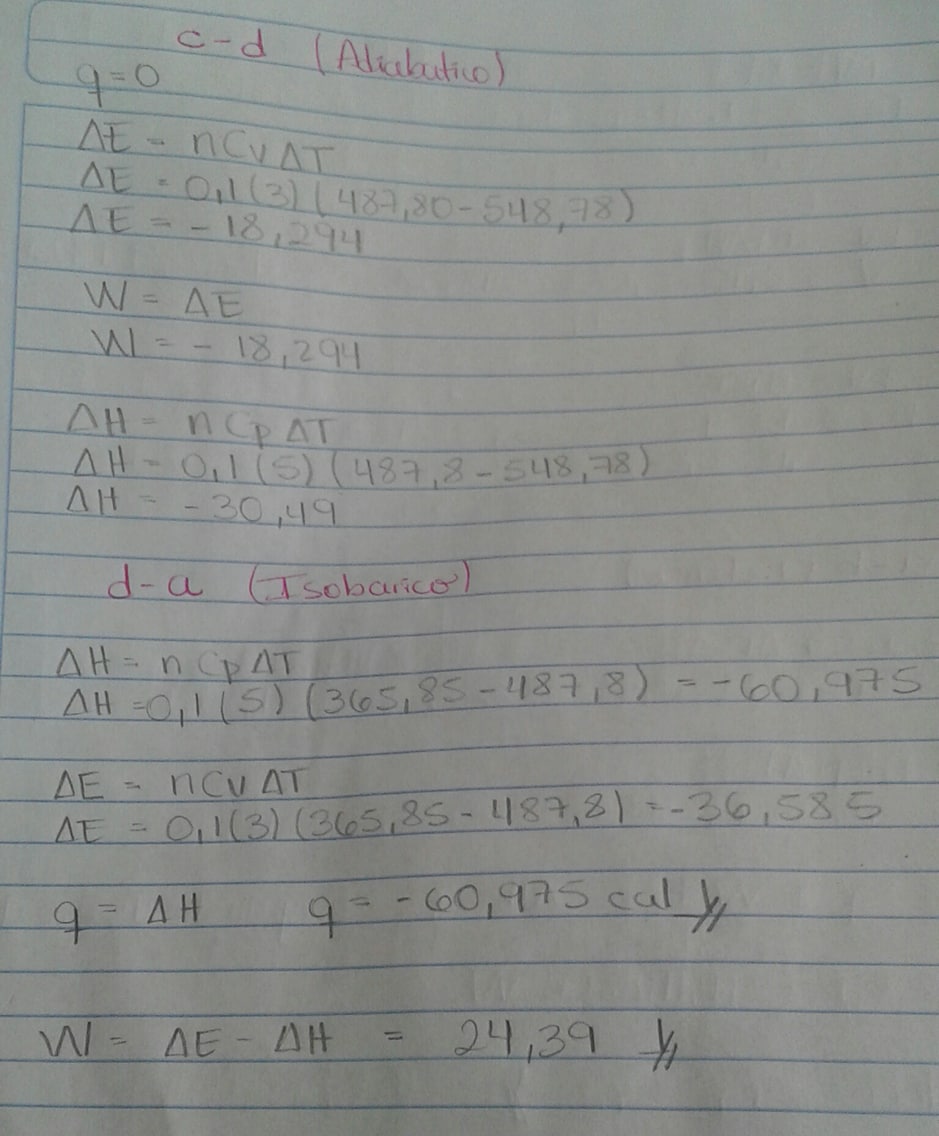 c-d (Adiabatico)
q=0
ΔE = nCvΔT
ΔE = 0,1(3)(487,80-548,78)
ΔE = -18,294
W = ΔE
W = -18,294
ΔH = nCpΔT
ΔH = 0,1(5)(487,8-548,78)
ΔH = -30,49
d-a (Isobarico)
ΔH = nCpΔT
ΔH =0,1(5)(365,85-487,8) = -60,975
ΔE = nCvΔT
ΔE = 0,1(3)(365,85-487,8) =-36,585
q = ΔH q = -60,975 cal
W = ΔE - ΔH = 24,39